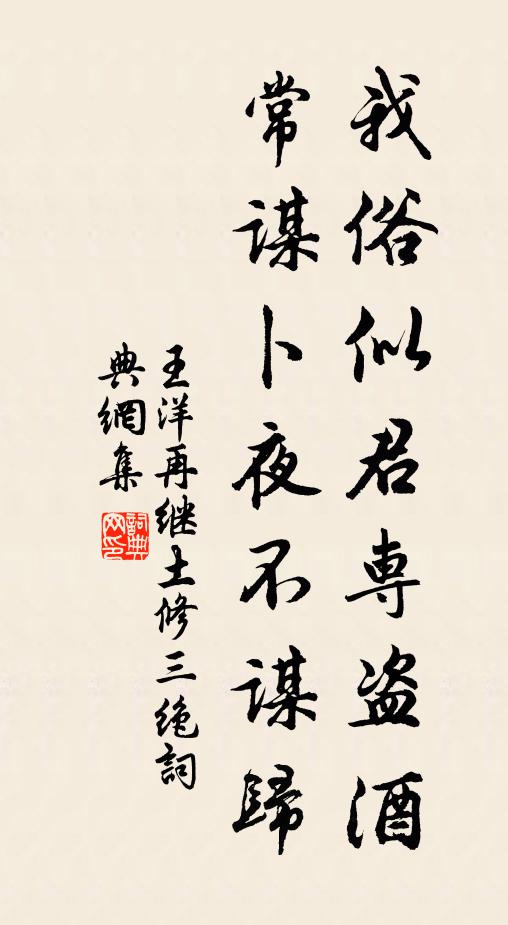 我俗似君専盗酒
常謀卜夜不謀歸
王洋再继土修三绝詞
典網集
詞典
网印